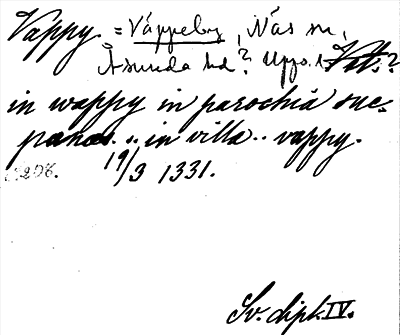 Vappy = Väppeby, Näs sn,
Åsunda hd? Upps. l. Vst.?
in wappy in parochia suc-
panæs .. in villa .. vappy.
19/3 1331.
Sv. dipl. IV.